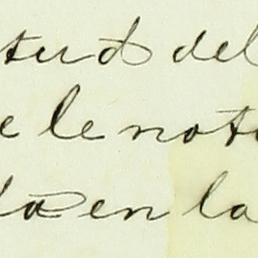 tud del
e le noto
da en la